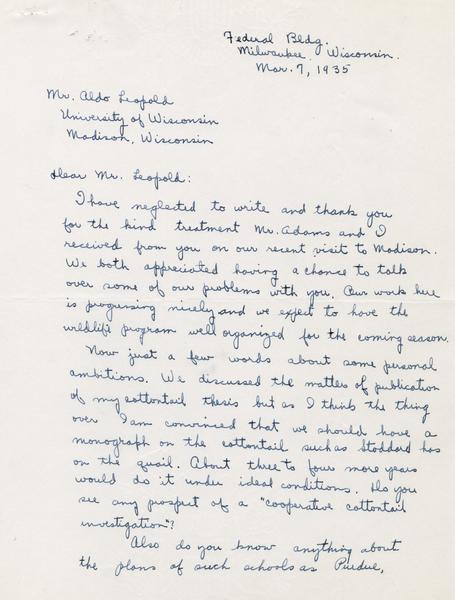 Federal Bldg.
Milwaukee, Wisconsin.
Mar. 7, 1935
Mr. Aldo Leopold
University of Wisconsin
Madison, Wisconsin
Dear Mr. Leopold:
I have neglected to write and thank you
for the kind treatment Mr. Adams and I
received from you on our recent visit to Madison.
We both appreciated having a chance to talk
over some of our problems with you. Our work here
is progressing nicely and we expect to have the
wildlife program well organized for the coming season.
Now just a few words about some personal
ambitions. We discussed the matter of publication
of my cottontail thesis but as I think the thing
over I am convinced that we should have a
monograph on the cottontail such as Stoddard has
on the quail. About three to four more years
would do it under ideal conditions. Do you
see any prospect of a "cooperative cottontail
investigation"?
Also do you know anything about
the plans of such schools as Purdue,